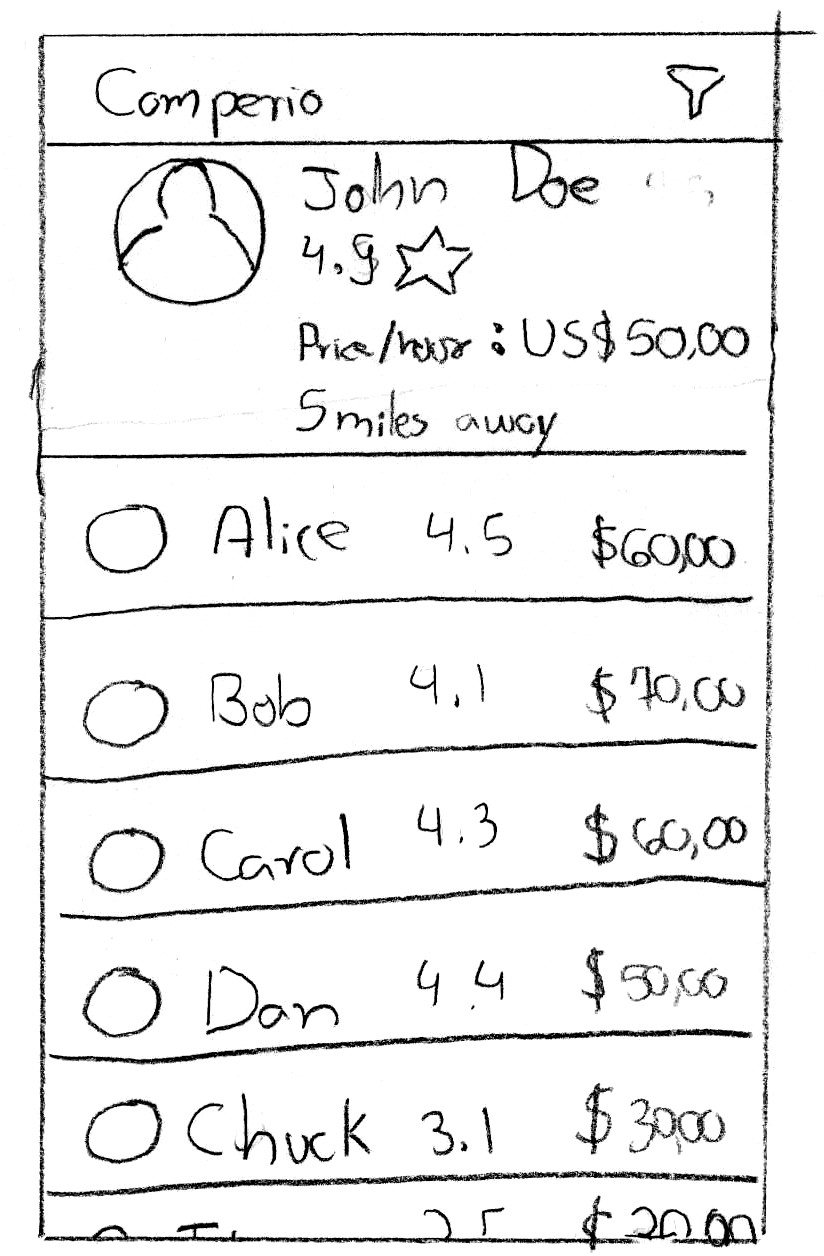 Comperio
John Doe
4.9
Price/hour : US$50,00
5 miles away
Alice 4.5 $60,00
Bob 4.1 $70,00
Carol 4.3 $60,00
Dan 4.4 $50,00
Chuck 3.1 $30,00
$20,00